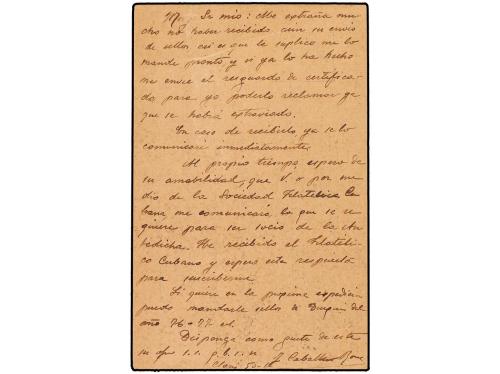 Sr mio: Me extraña mu
cho no haber recibido aun su envio
de sellos asi es que le suplico me lo
mande pronto y si ya lo ha hecho
me envie el resguardo de certifica
do para yo poderlo reclamar ya
que se habrá extraviado.
En caso de recibirlo, ya se lo
comunicaré inmediatamente.
Al propio tiempo espero de
su amabilidad, que V. o por me
dio de la Sociedad Filatelica Cu
bana, me comunicará lo que se re
quiere para ser socio de la An
tedicha. He recibido el Filateli
co Cubano y espero esta respuesta
para suscribirme.
Si quiere en la proxima expedición
puedo mandarle sellos de del
año 76 + 77 et.
Disponga como guste de este
su s.s. q.b.s.m
Caballero